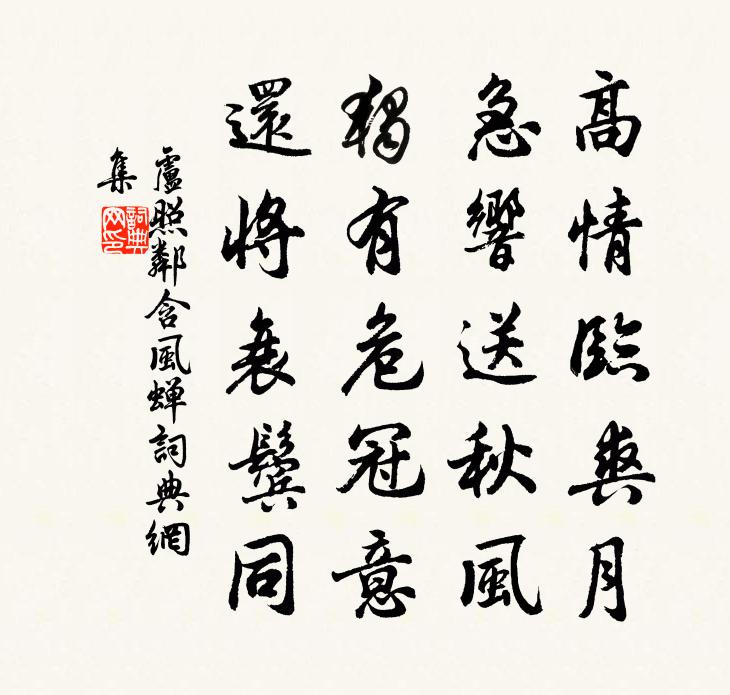 高情臨爽月
急響送秋風
獨有危冠意
還將衰鬢同
盧照鄰含風蟬詞典網
集
詞典網印